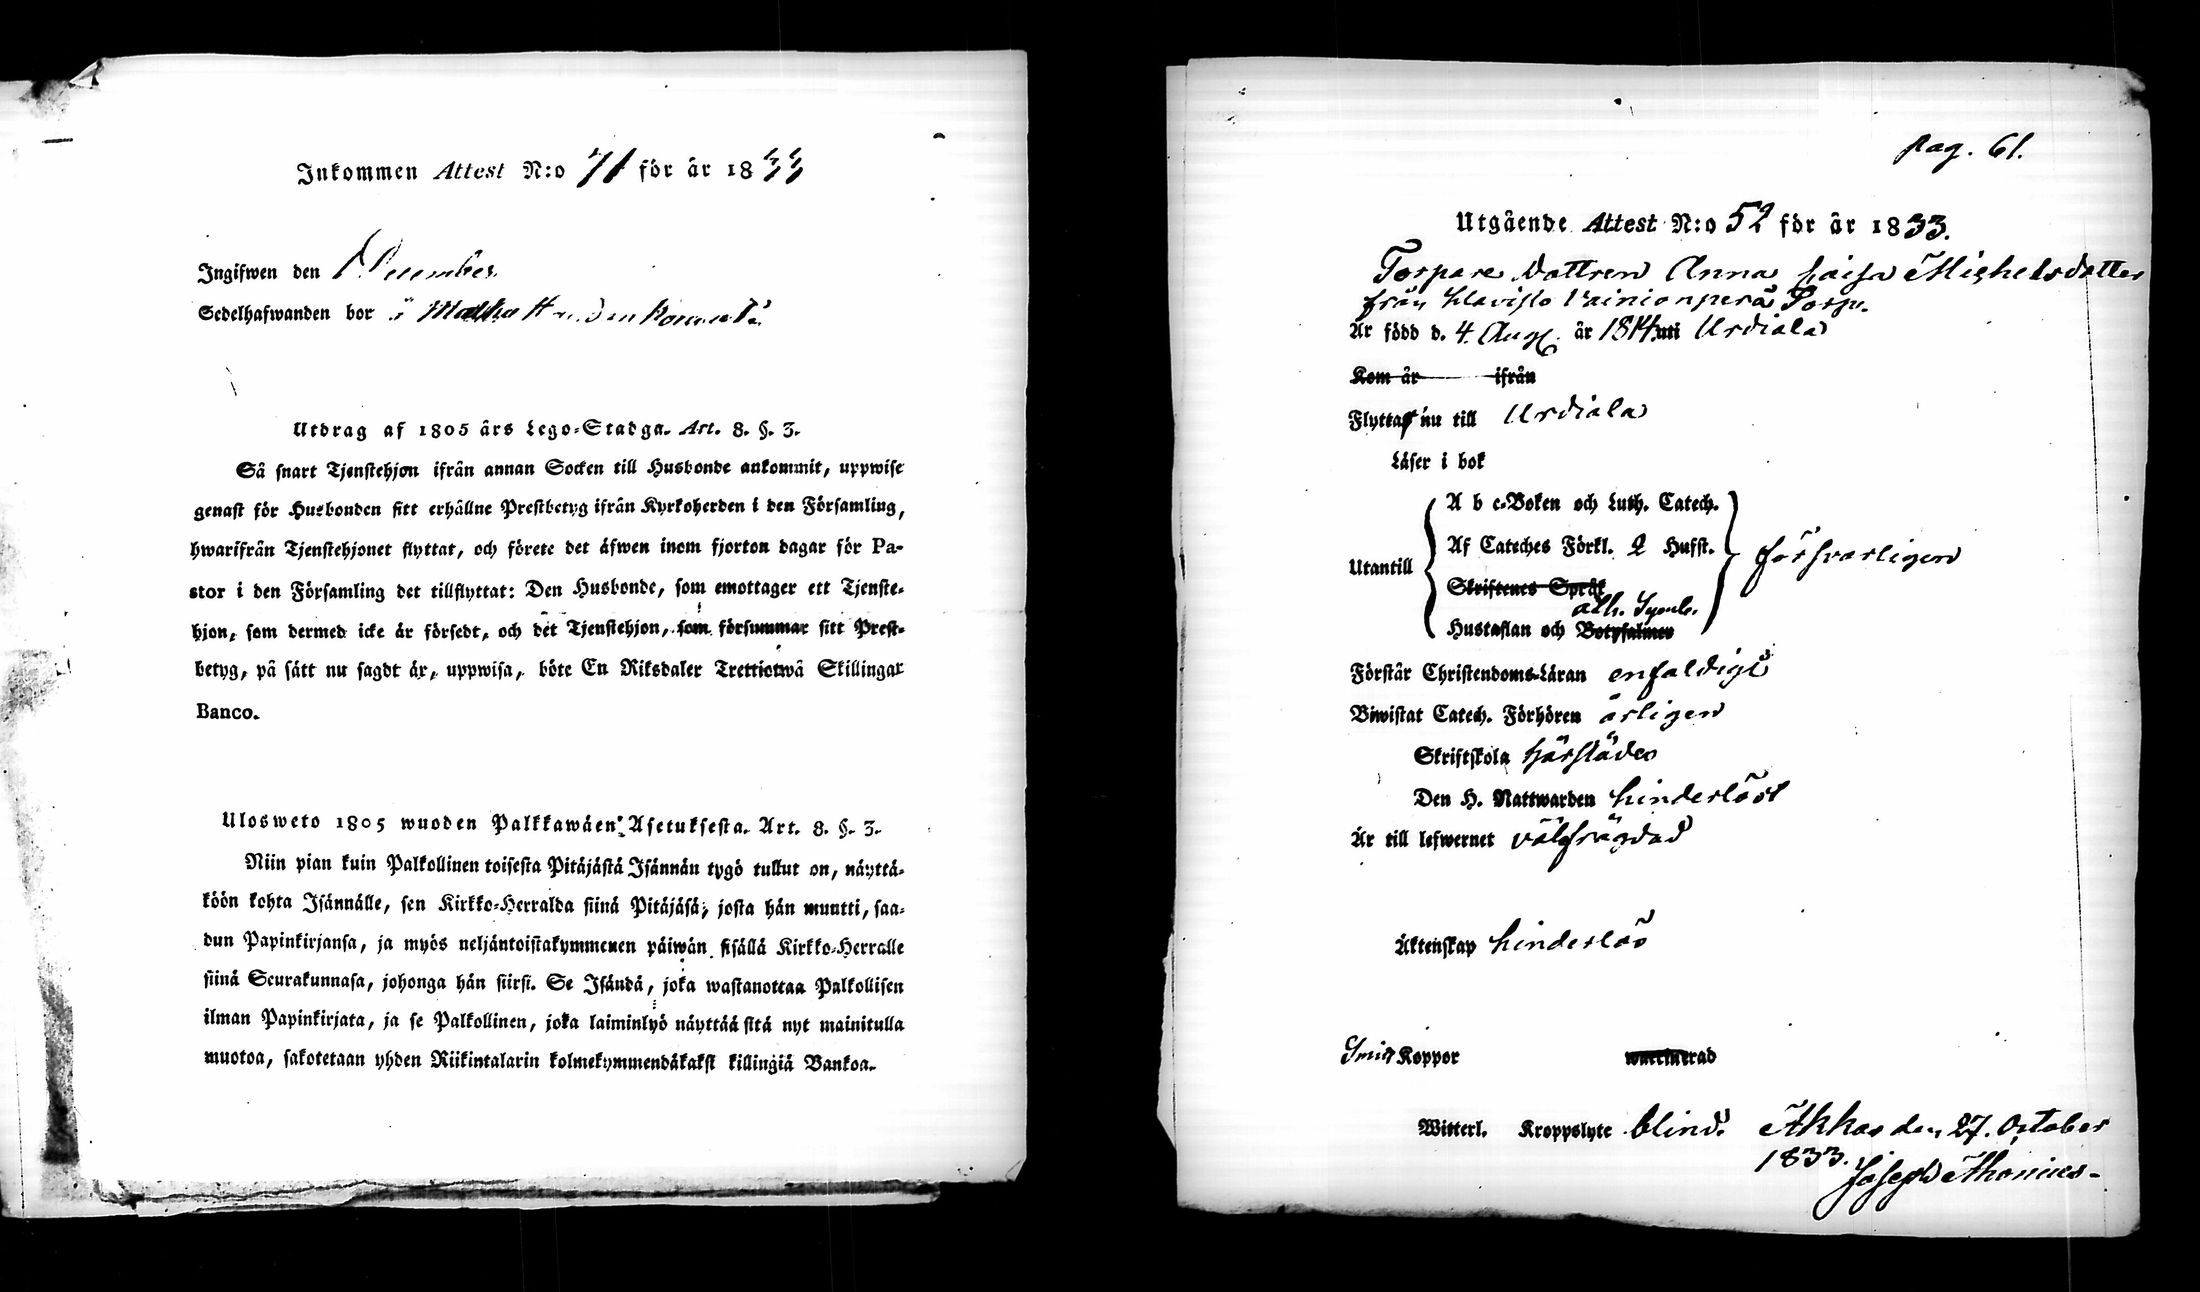 Inkommen Attest N:o 71 för år 1833
Ingifwen den December
Sedelhafwanden bor i
Utdrag af 1805 års Lego-Stadga. Art. 8. §. 3.
Så snart Tjenstehjon ifrån annan Socken till Husbonde ankommit, uppwise
genast för Husbonden sitt erhållne Prestbetyg ifrån Kyrkoherden i den Församling,
hwarifrån Tjenstehjonet flyttat, och förete det äfwen inom fjorton dagar för Pa-
stor i den Församling det tillflyttat: Den Husbonde, som emottager ett Tjenste-
hjon, som dermed icke är försedt, och det Tjenstehjon, som försummar sitt Prest-
betyg, på sätt nu sagdt är, uppwisa, böte En Riksdaler Trettiotwå Skillingar
Banco.
Ulosweto 1805 wuoden Palkkawäen Asetuksesta. Art. 8. §. 3.
Niin pian kuin Palkollinen toisesta Pitäjästä Isännän tygö tullut on, näyttä-
köön kohta Isännälle, sen Kirkko-Herralda siinä Pitäjäsä, josta hän muutti, saa-
dun Papinkirjansa, ja myös neljäntoistakymmenen päiwän sisällä Kirkko-Herralle
siinä Seurakunnasa, johonga hän siirsi. Se Isändä, joka wastanottaa Palkollisen
ilman Papinkirjata, ja se Palkollinen, joka laiminlyö näyttää sitä nyt mainitulla
muotoa, sakotetaan yhden Riikintalarin kolmekymmendäkaksi killingiä Bankoa.
pag. 61.
Utgående Attest N:o 52 för år 1833.
Torpare Dottren Anna Caisa Michelsdotter
från Vainionperä Torp.
Är född d. 4. Aug. år 1814 uti Urdiala
Kom år ifrån
Flyttar nu till Urdiala
Läser i bok
A b c-Boken och Luth. Catech.
Utantill Af Cateches Förkl. 2 Hufst. försvarligen
Skriftenes Språk
ath. Symb.
Hustaflan och Botpsalmer
Förstår Christendoms-Läran enfaldigt
Biwistat Catech. Förhören årligen
Skriftskola härstädes
Den H. Nattwarden hinderlöst
Är till lefwernet välfrägdad
Äktenskap hinderlös
Koppor waccinerad
Witterl. Kroppslyte blind. Akkas den 27. October
1833.
Joseph